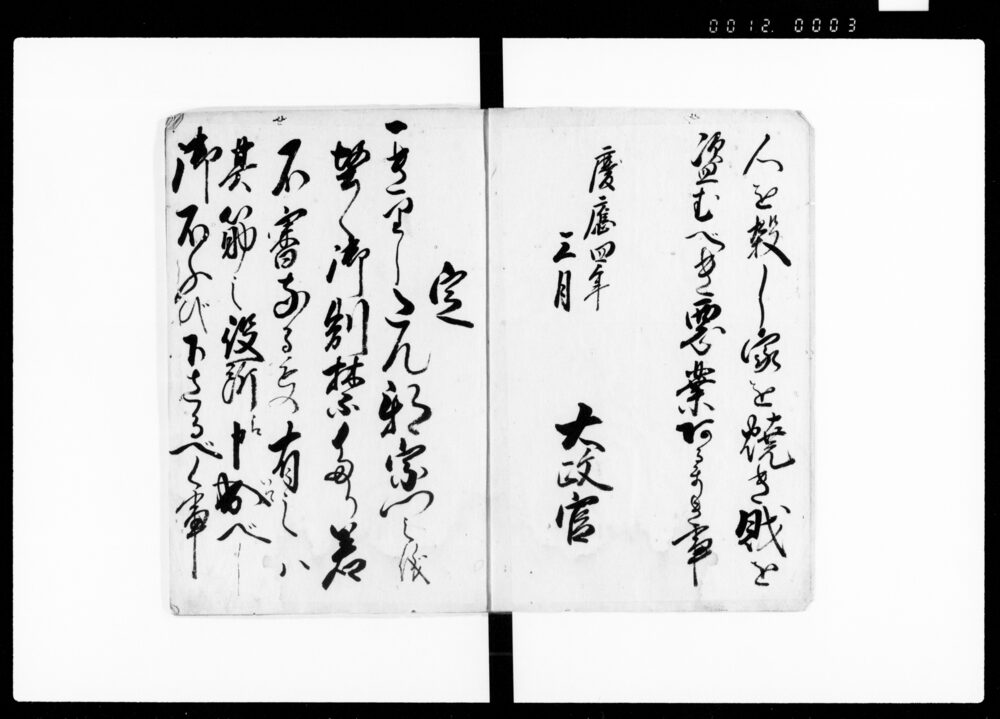 0012. 0003
人を殺し家を焼き財を
盗むべき悪業あるまじき事
慶應四年
三月
太政官
定
一きりしたん邪宗門之儀
堅く御制禁たり若
不審なるもの有之ハ
其筋之役所に申出べし
御ほうび下さるべく事